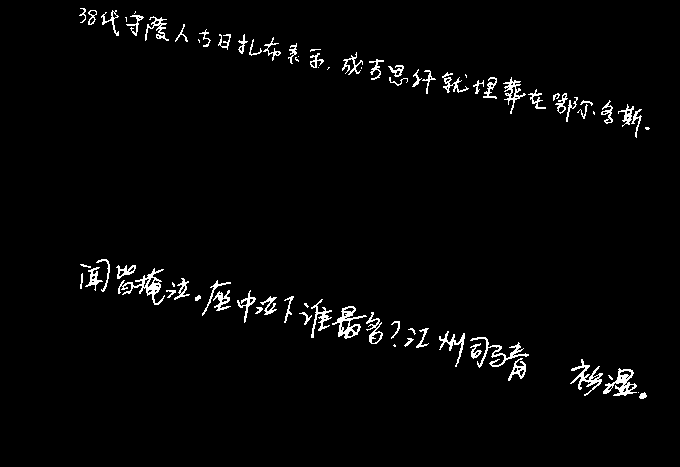 38代守陵人古日扎布表示,成吉思汗就埋葬在鄂尔多斯。
闻皆掩泣。座中泣下谁最多?江州司马青 衫湿。